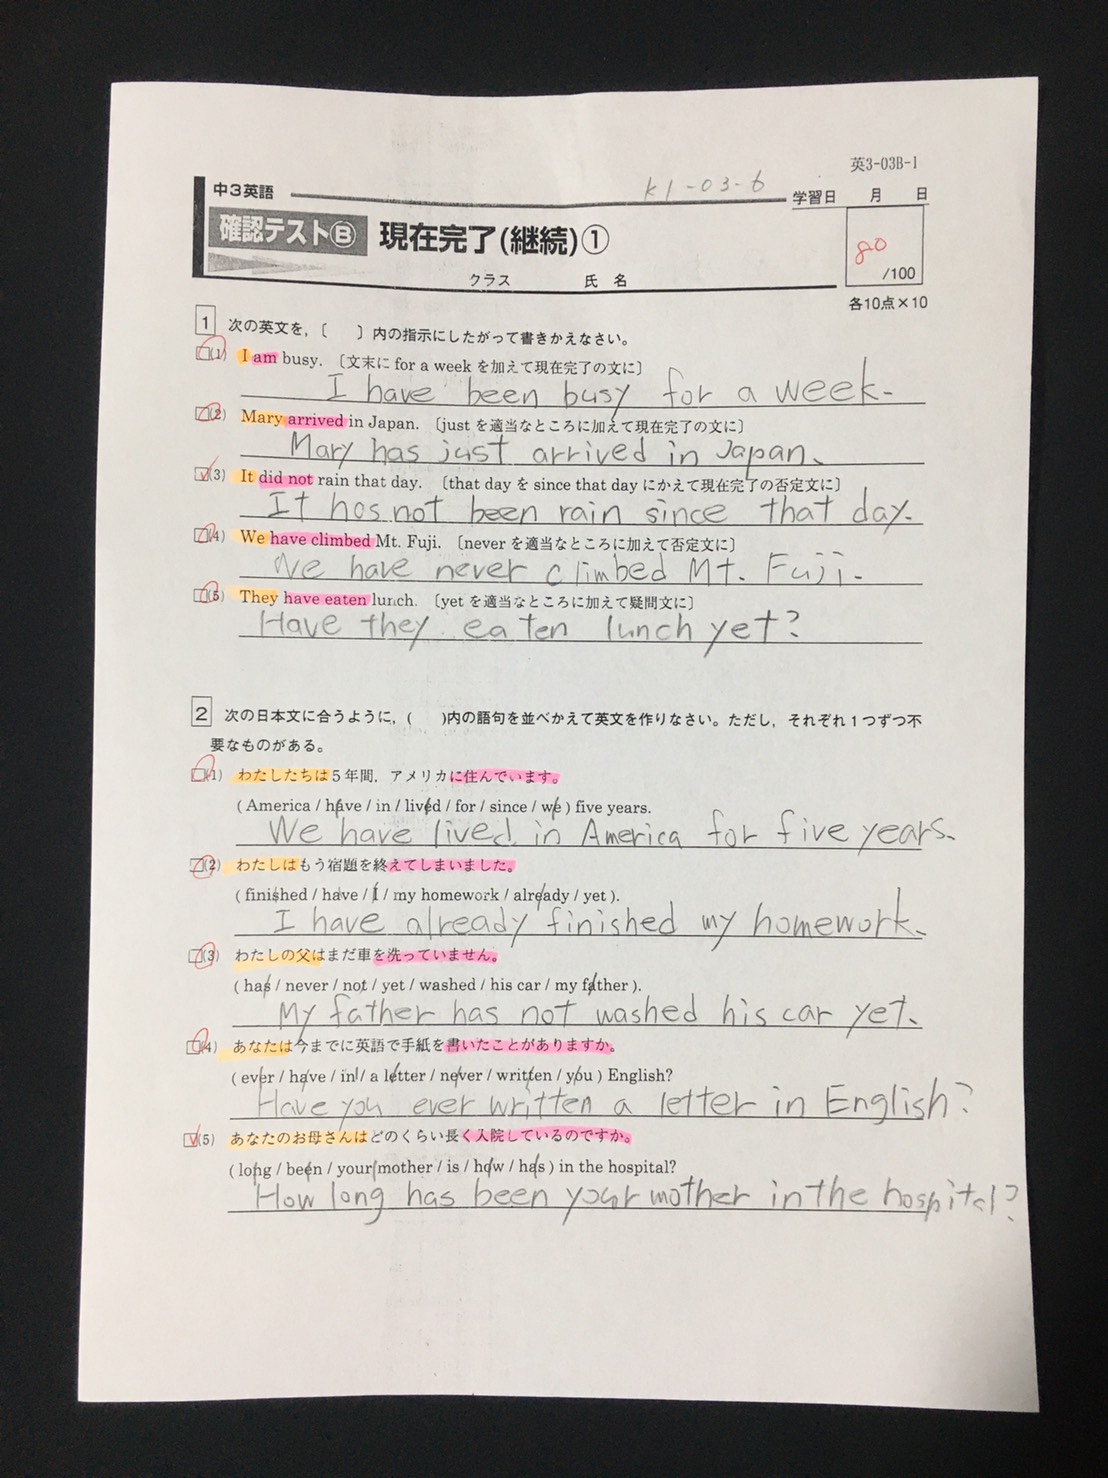 英3-03B-1
中3英語
k1-03-6
学習日 月 日
確認テストⒷ 現在完了(継続)①
80
/100
クラス 氏 名
各10点×10
1 次の英文を,〔 〕内の指示にしたがって書きかえなさい。
(1) I am busy. 〔文末に for a week を加えて現在完了の文に〕
I have been busy for a week.
(2) Mary arrived in Japan. 〔just を適当なところに加えて現在完了の文に〕
Mary has just arrived in Japan.
(3) It did not rain that day. 〔that day を since that day にかえて現在完了の否定文に〕
It has not been rain since that day.
(4) We have climbed Mt. Fuji. 〔never を適当なところに加えて否定文に〕
We have never climbed Mt. Fuji.
(5) They have eaten lunch. 〔yet を適当なところに加えて疑問文に〕
Have they eaten lunch yet?
2 次の日本文に合うように,( )内の語句を並べかえて英文を作りなさい。ただし,それぞれ1つずつ不
要なものがある。
(1) わたしたちは5年間,アメリカに住んでいます。
( America / have / in / lived / for / since / we ) five years.
We have lived in America for five years.
(2) わたしはもう宿題を終えてしまいました。
( finished / have / I / my homework / already / yet ).
I have already finished my homework.
(3) わたしの父はまだ車を洗っていません。
( has / never / not / yet / washed / his car / my father ).
My father has not washed his car yet.
(4) あなたは今までに英語で手紙を書いたことがありますか。
( ever / have / in / a letter / never / written / you ) English?
Have you ever written a letter in English?
(5) あなたのお母さんはどのくらい長く入院しているのですか。
( long / been / your mother / is / how / has ) in the hospital?
How long has been your mother in the hospital?